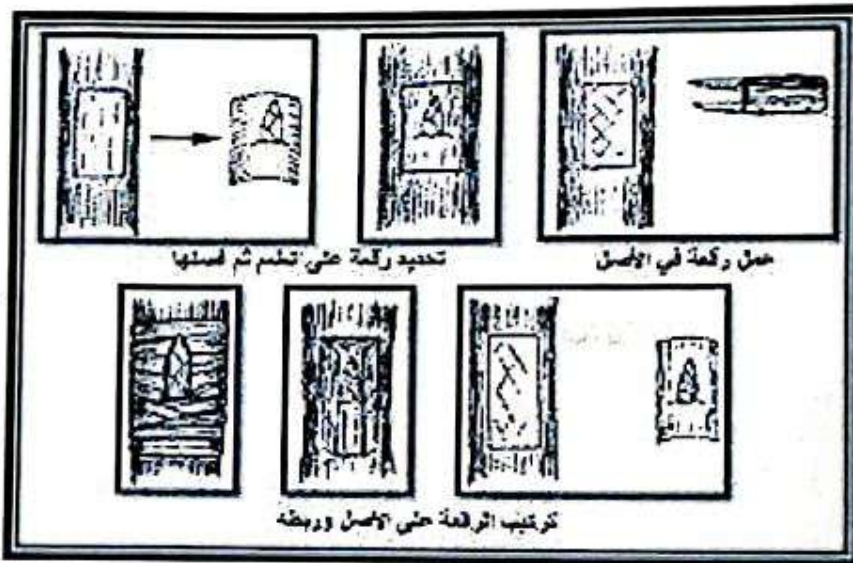 عمل رقعة في الأصل
تحديد رقعة على الطعم ثم فصلها
تركيب الرقعة على الأصل وربطه